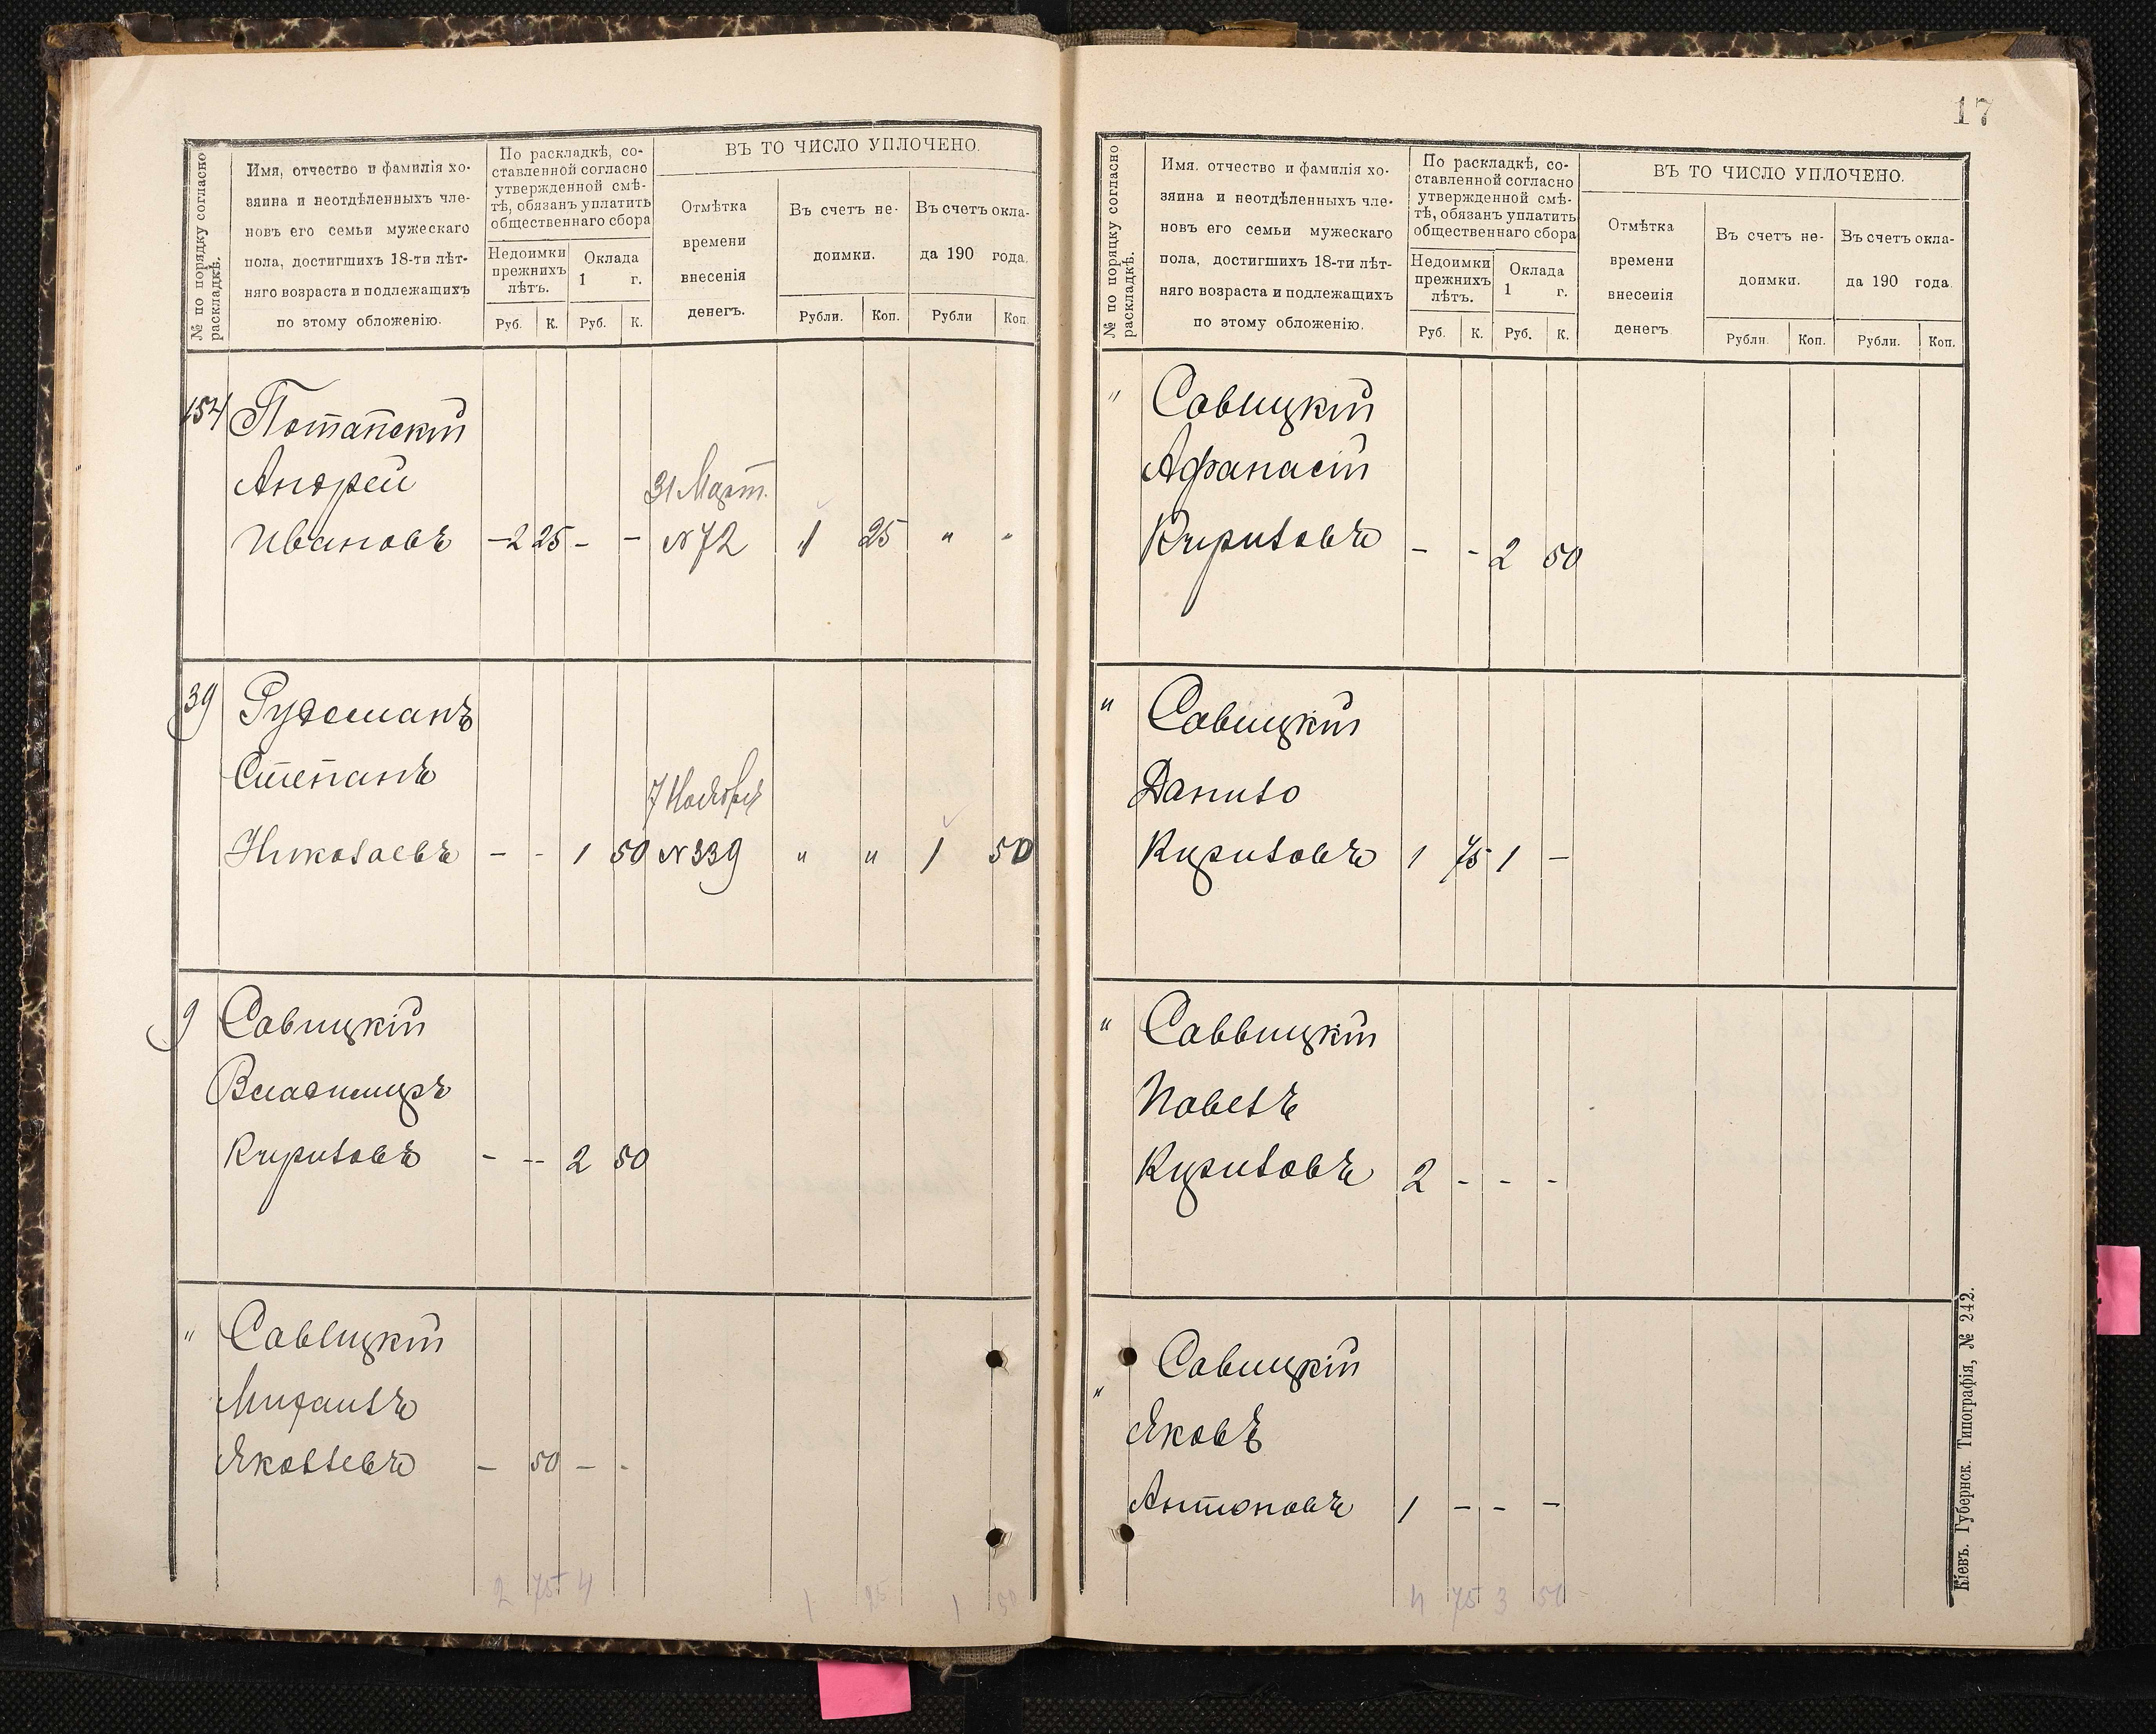 № по порядку согласно раскладкѣ.
Имя, отчество и фамилія хо-
зяина и неотдѣленныхъ чле-
новъ его семьи мужескаго
пола, достигшихъ 18-ти лѣт-
няго возраста и подлежащихъ
по этому обложенію.
По раскладкѣ, со-
ставленной согласно
утвержденной смѣ-
тѣ, обязанъ уплатить
общественнаго сбора
Недоимки
прежнихъ
лѣтъ.
Оклада
1 г.
Руб. К. Руб. К.
ВЪ ТО ЧИСЛО УПЛОЧЕНО.
Отмѣтка
времени
внесенія
денегъ.
Въ счетъ не-
доимки.
Въ счетъ окла-
да 190 года.
Рубли. Коп. Рубли Коп.
154 Потапскій
Андрей
31 Март.
Ивановъ — 2 25 - - №72 1 25 " "
39
Степанъ
7 Ноября
Николаевъ - - 1 50 №339 " " 1 50
9 Савицкій
Владимиръ
Кириловъ - -- 2 50
" Савицкій
Михаилъ
Яковлевъ - 50 - -
2 75 4
1 25 1 50
17
№ по порядку согласно раскладкѣ.
Имя. отчество и фамилія хо-
зяина и неотдѣленныхъ чле-
новъ его семьи мужескаго
пола, достигшихъ 18-ти лѣт-
няго возраста и подлежащихъ
по этому обложенію.
По раскладкѣ, со-
ставленной согласно
утвержденной смѣ-
тѣ, обязанъ уплатить
общественнаго сбора
Недоимки
прежнихъ
лѣтъ.
Оклада
1 г.
Руб. К. Руб. К.
ВЪ ТО ЧИСЛО УПЛОЧЕНО.
Отмѣтка
времени
внесенія
денегъ
Въ счетъ не-
доимки.
Въ счетъ окла-
да 190 года.
Рубли. Коп. Рубли. Коп.
" Савицкій
Афанасій
Кириловъ - - 2 50
" Савицкій
Данило
Кириловъ 1 75 1 —
" Саввицкій
Павелъ
Кириловъ 2 - - -
Савицкій
"
Яковъ
Антоновъ 1 - - -
4 75 3 50
Кіевъ. Губернск. Типографія, № 242.